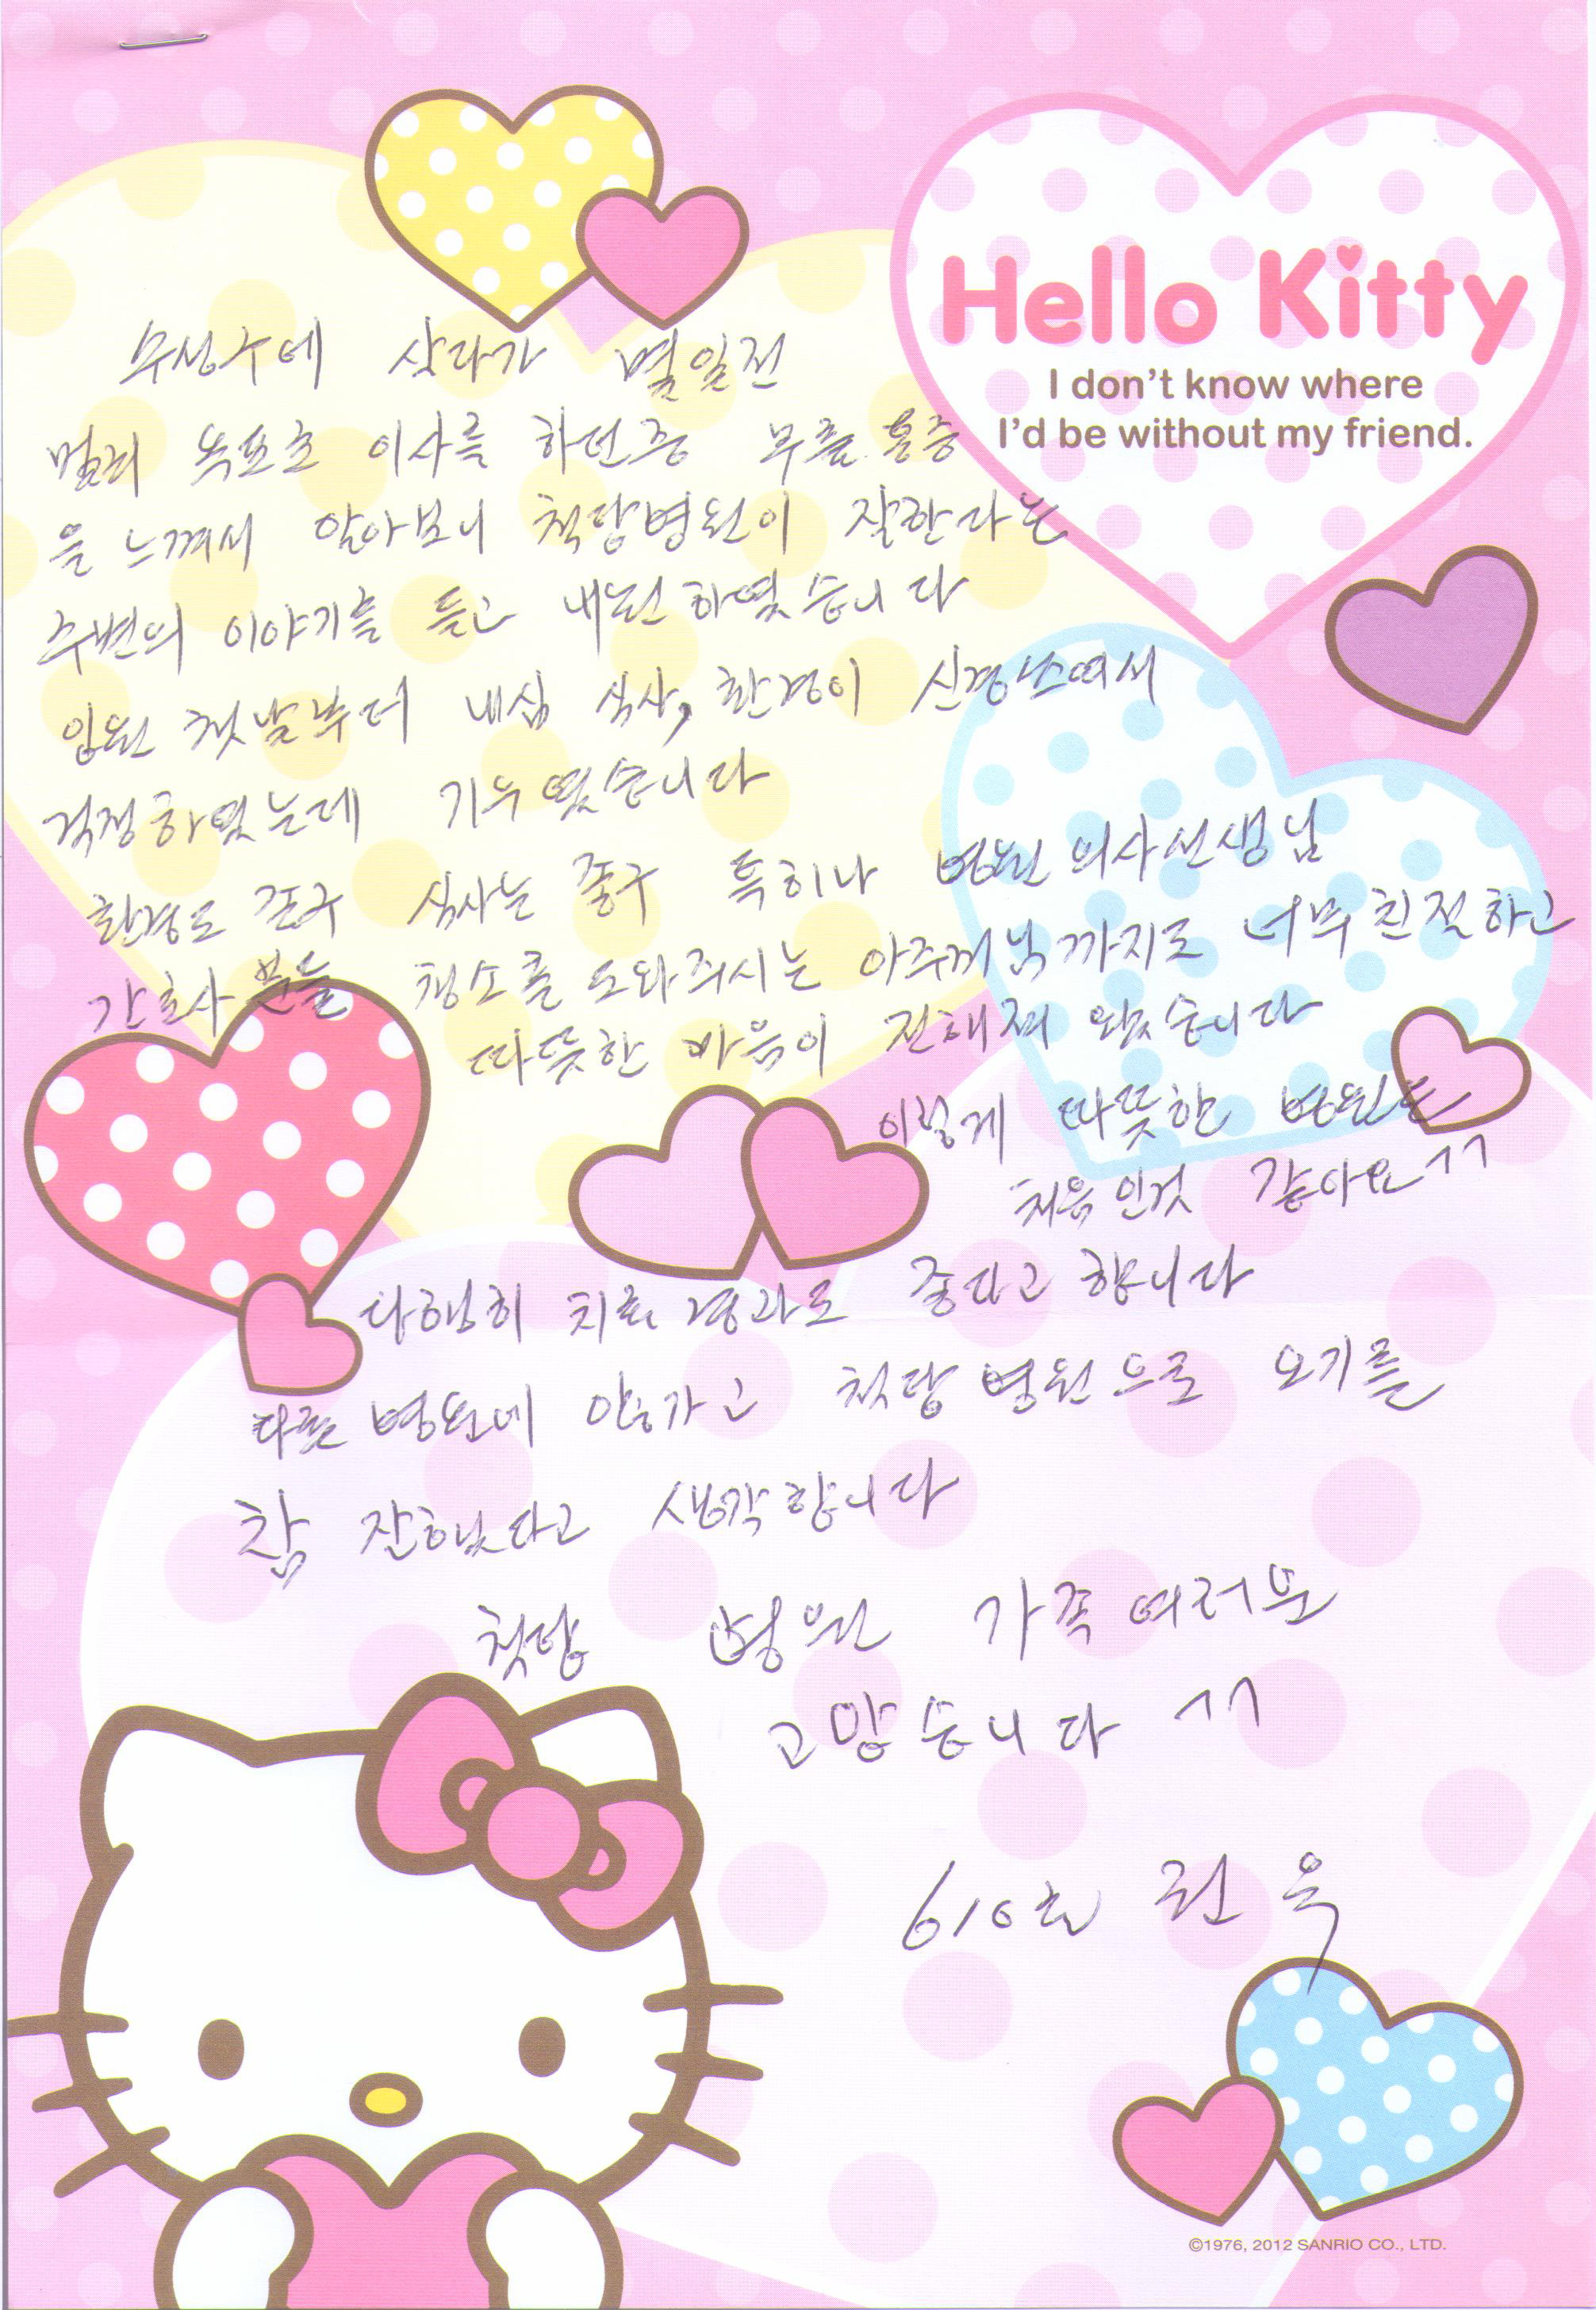 Hello Kitty
I don't know where
I'd be without my friend.
살다가 몇일전
멀리 목포로 이사를 하던중 무릎 통증
을 느껴서 알아보니 척당병원이 잘한다는
주변의 이야기를 듣고 내원하였습니다
입원 첫날부터 내심 식사, 환경이 신경쓰여서
걱정하였는데 기우였습니다
환경도 좋구 식사는 좋구 특히나 병원 의사선생님
간호사 분들 청소를 도와주시는 아주머님까지도 너무 친절하고
따뜻한 마음이 전해져 왔습니다
이렇게 따뜻한 병원은
처음인것 같아요^^
다행히 치료 경과도 좋다고 합니다
다른 병원에 안가고 척당병원으로 오기를
참 잘했다고 생각합니다
척당 병원 가족여러분
고맙습니다 ^^
610호
©1976, 2012 SANRIO CO., LTD.